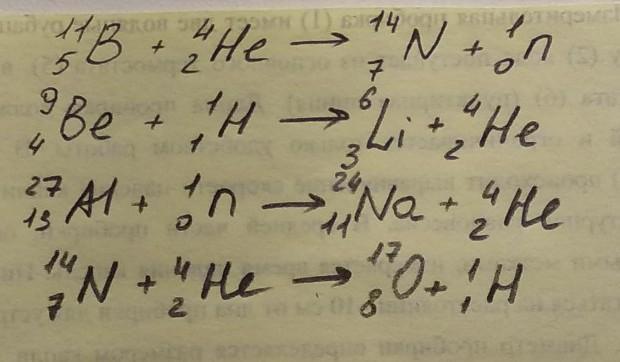 ¹¹₅B + ⁴₂He → ¹⁴₇N + ¹₀n
⁹₄Be + ¹₁H → ⁶₃Li + ⁴₂He
²⁷₁₃Al + ¹₀n → ²⁴₁₁Na + ⁴₂He
¹⁴₇N + ⁴₂He → ¹⁷₈O + ¹₁H